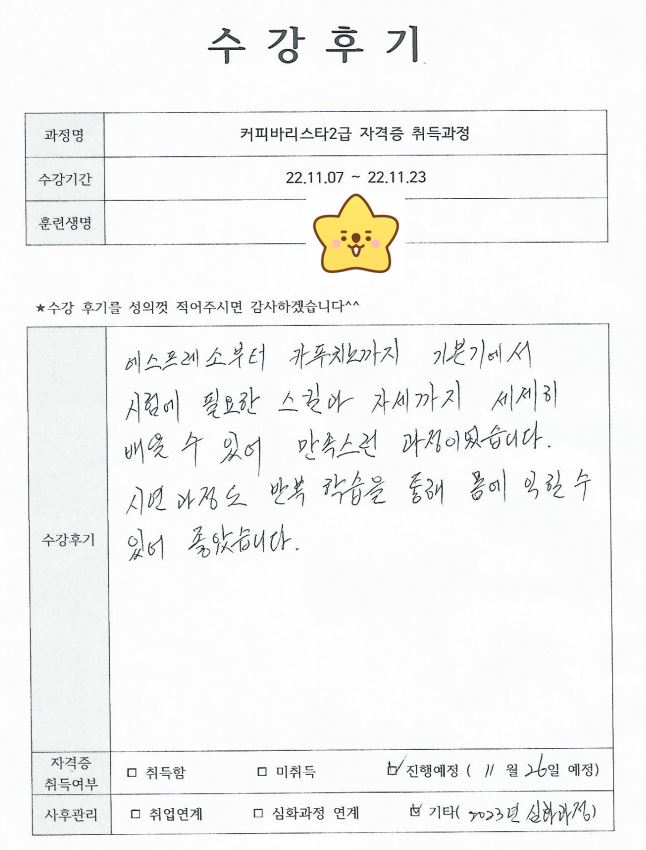 수강후기
과정명 커피바리스타2급 자격증 취득과정
수강기간 22.11.07 ~ 22.11.23
훈련생명
★수강 후기를 성의껏 적어주시면 감사하겠습니다^^
에스프레소부터 카푸치노까지 기본기에서
시험에 필요한 스킬과 자세까지 세세히
배울 수 있어 만족스런 과정이였습니다.
수강후기
시연과정도 반복 학습을 통해 몸에 익힐 수
있어 좋았습니다.
자격증 취득여부 □ 취득함 □ 미취득 ☑ 진행예정 ( 11 월 26일 예정)
사후관리 □ 취업연계 □ 심화과정 연계 ☑ 기타( 2023년 심화과정)